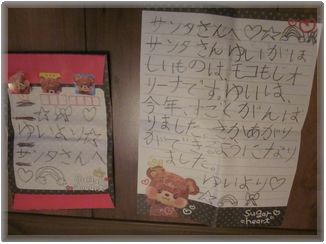 ゆいより☆
サンタさんへ
サンタさんへ♡☆
サンタさんゆいがほ
しいものは、モコもじオ
リーナです。ゆいは、
今年、すごくがんば
りました。さかあがり
ができるようになり
ました。♡
ゆいより♡
Sugar
heart